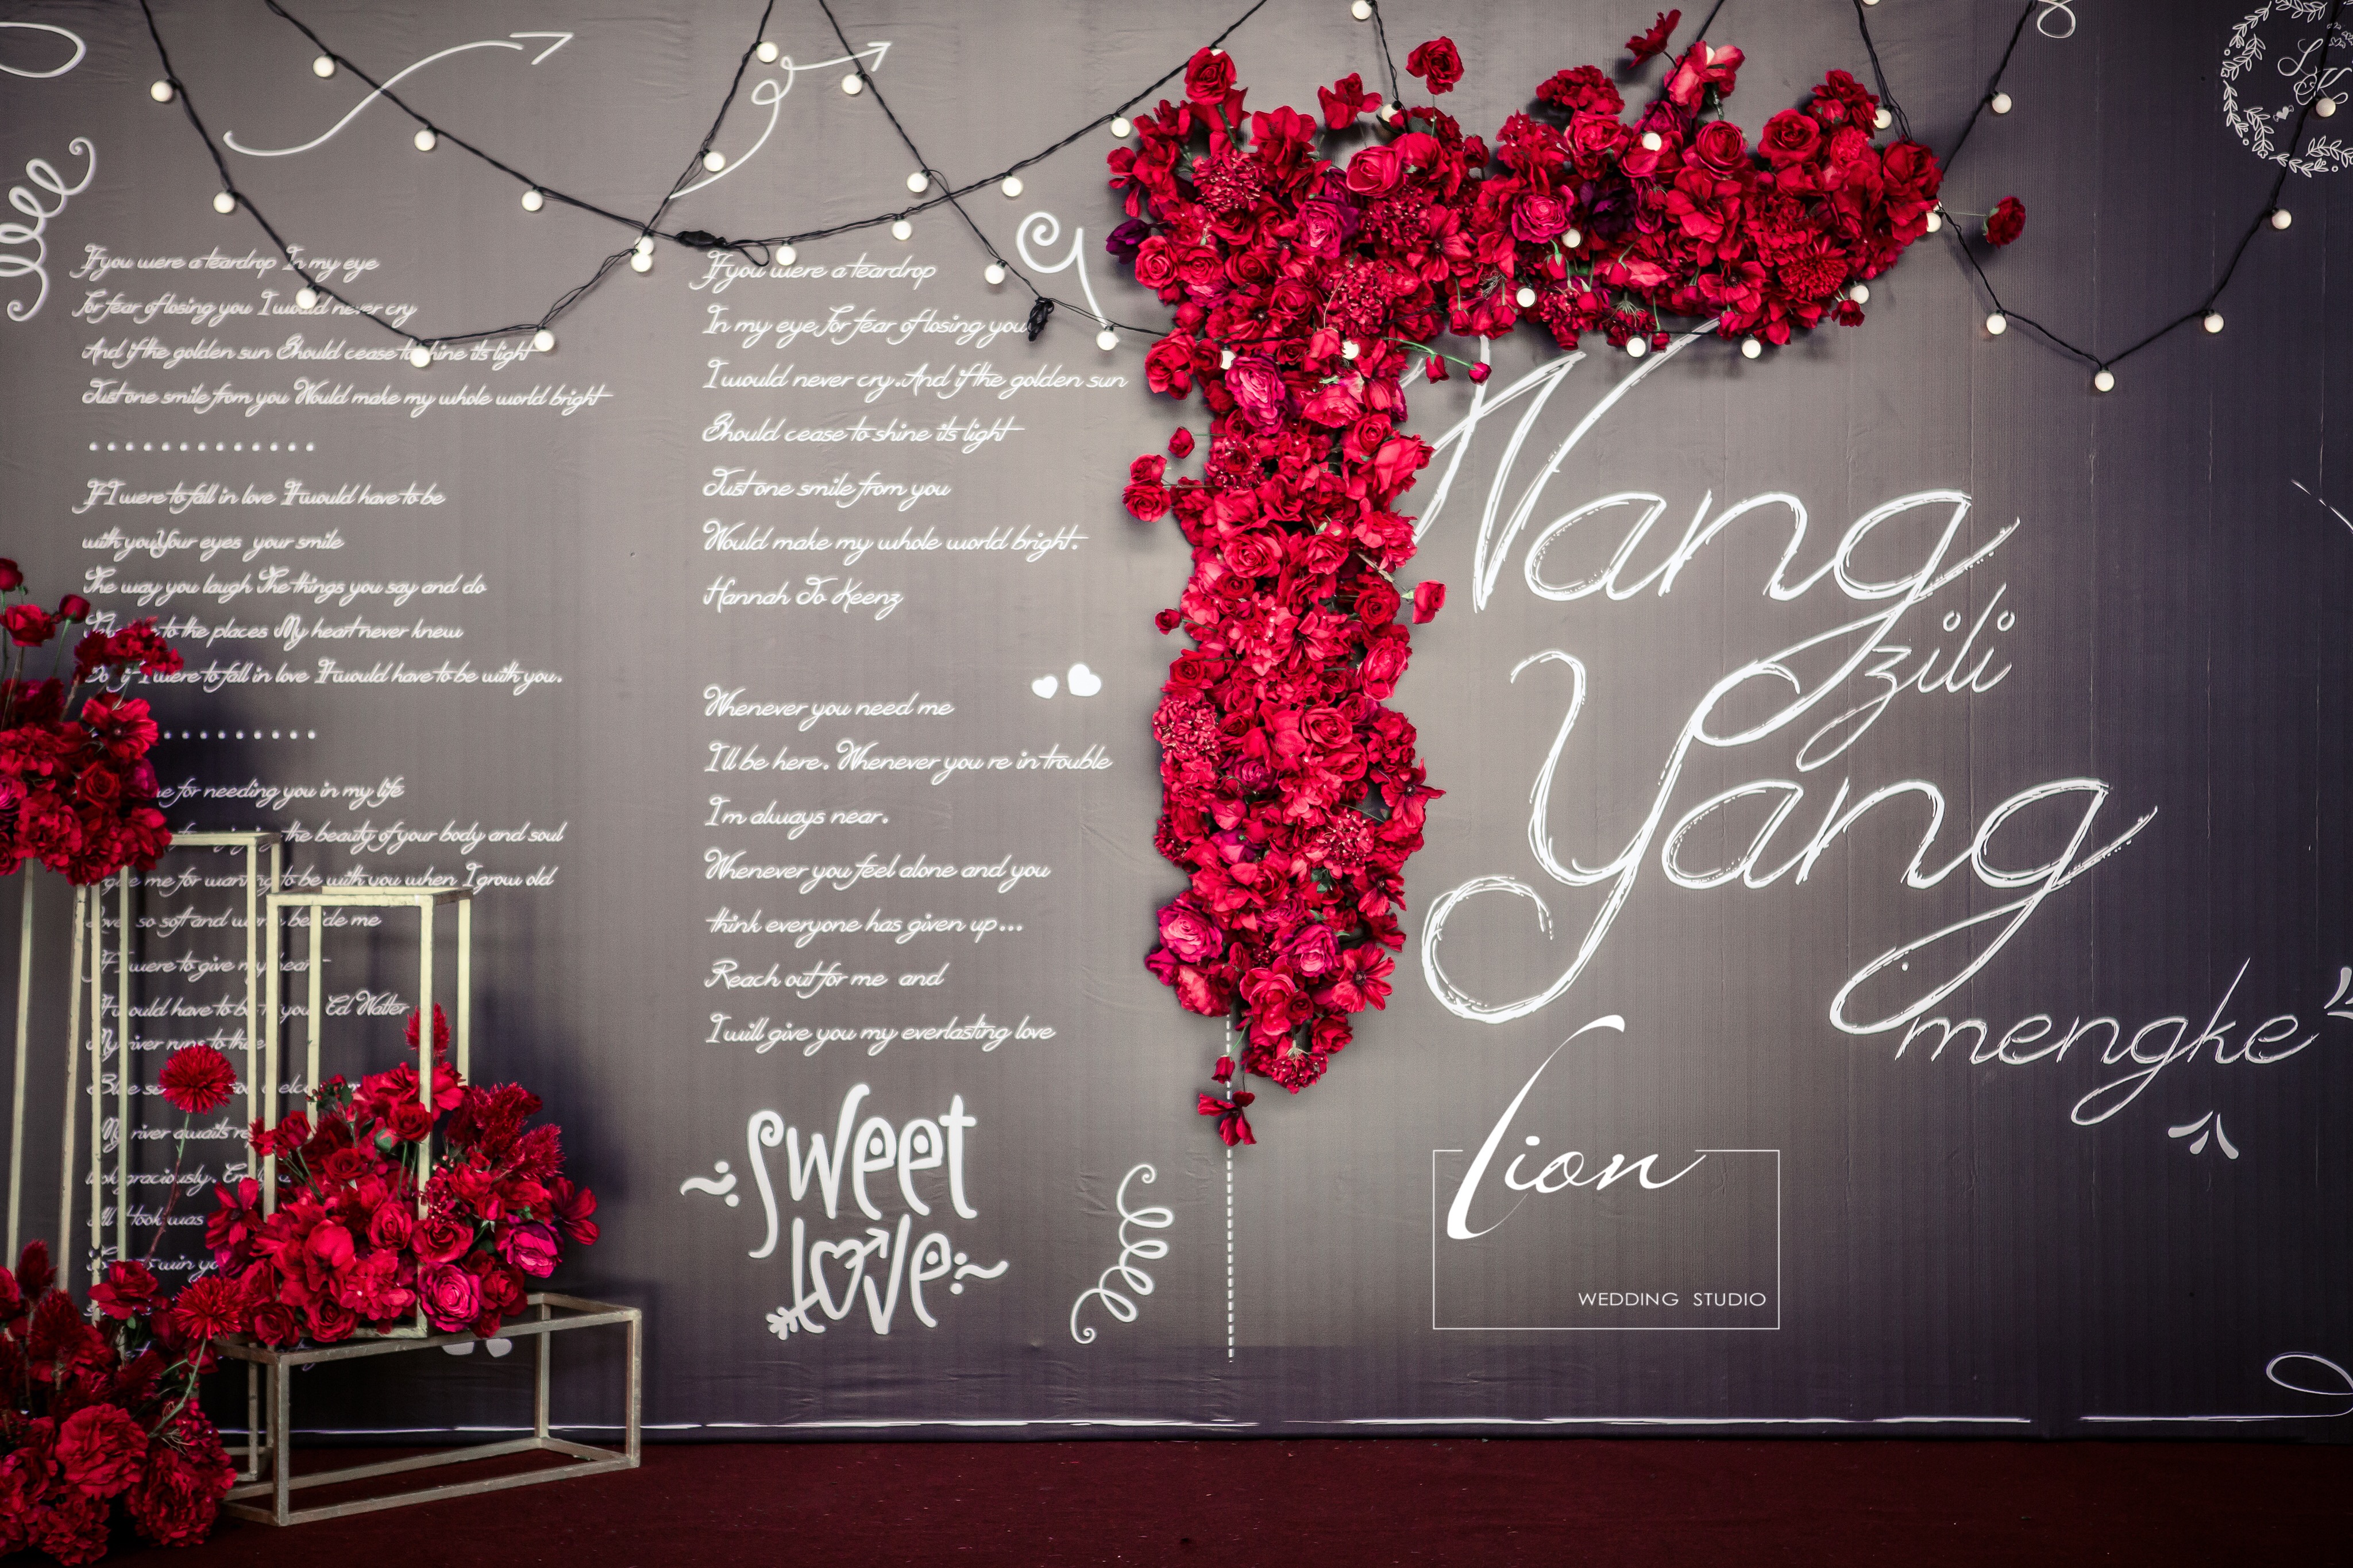 If you were a teardrop In my eye
for fear of losing you I would never cry
And if the golden sun Should cease to shine its light
Just one smile from you Would make my whole world bright
.............
If I were to fall in love It would have to be
with you Your eyes your smile
The way you laugh The things you say and do
to the places My heart never knew
So if I were to fall in love It would have to be with you.
.........
for needing you in my life
the beauty of your body and soul
me for wanting to be with you when I grow old
so soft and warm beside me
If I were to give my heart
would have to be you Ed Walter
My river runs to thee
Blue
My river awaits
look graciously.
took was
win
If you were a teardrop
In my eye for fear of losing you
I would never cry. And if the golden sun
Should cease to shine its light
Just one smile from you
Would make my whole world bright.
Hannah Jo Keenz
Whenever you need me
I'll be here. Whenever you re in trouble
I'm always near.
Whenever you feel alone and you
think everyone has given up...
Reach out for me and
I will give you my everlasting love
sweet
love
Wang
zili
Yang
mengke
Lion
WEDDING STUDIO
L
K